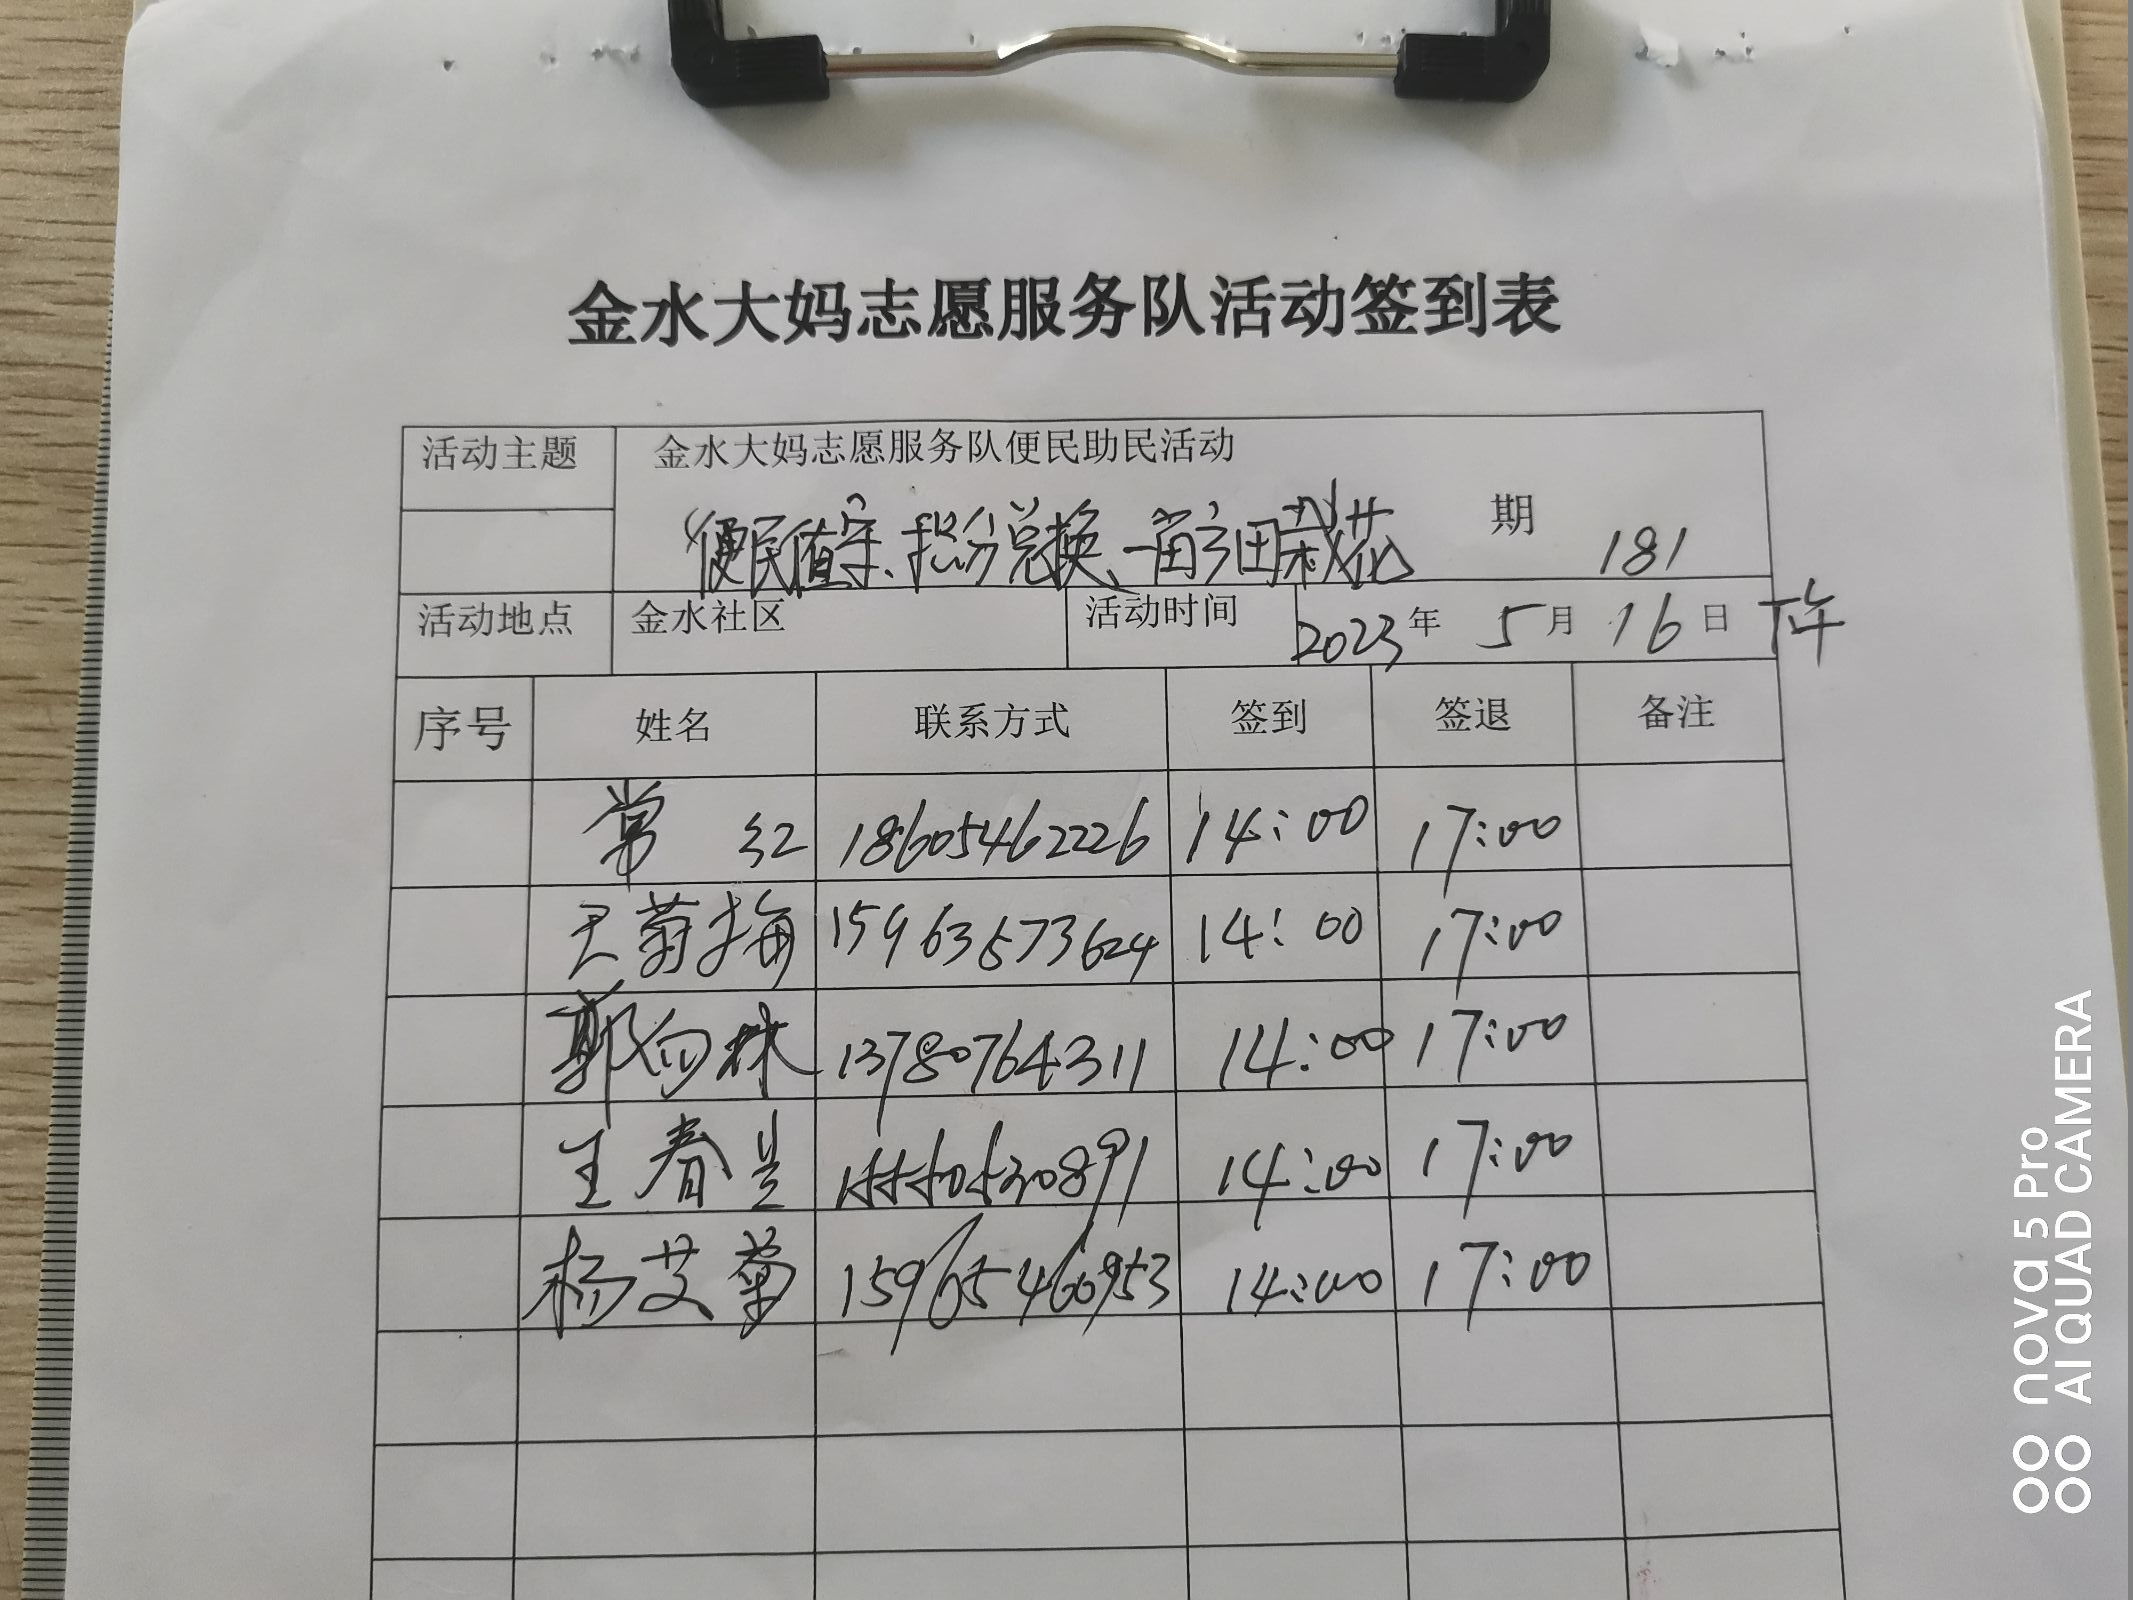 金水大妈志愿服务队活动签到表
活动主题 金水大妈志愿服务队便民助民活动
便民值守、积分兑换、一亩方田栽花 期 181
活动地点 金水社区 活动时间 2023年 5月 16日 下午
序号 姓名 联系方式 签到 签退 备注
常红 18605462226 14:00 17:00
菊梅 15963573624 14:00 17:00
郭向林 13780764311 14:00 17:00
王春 14:00 17:00
杨艾菊 15965460953 14:00 17:00
nova 5 Pro
AI QUAD CAMERA